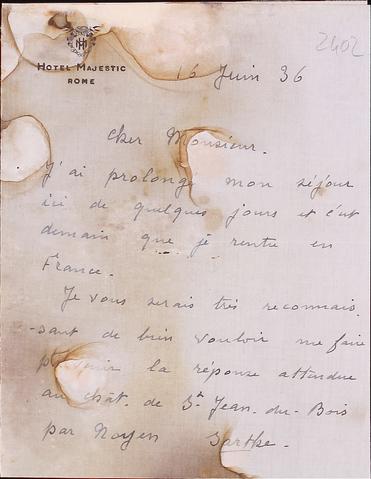 2402
HOTEL MAJESTIC
ROME
16 Juin 36
Cher Monsieur.
J'ai prolongé mon séjour
ici de quelques jours et c'est
demain que je rentre en
France.
Je vous serais très reconnais
-sant de bien vouloir me faire
la réponse attendue
au chât. de St Jean-du-Bois
par Noyen Sarthe.